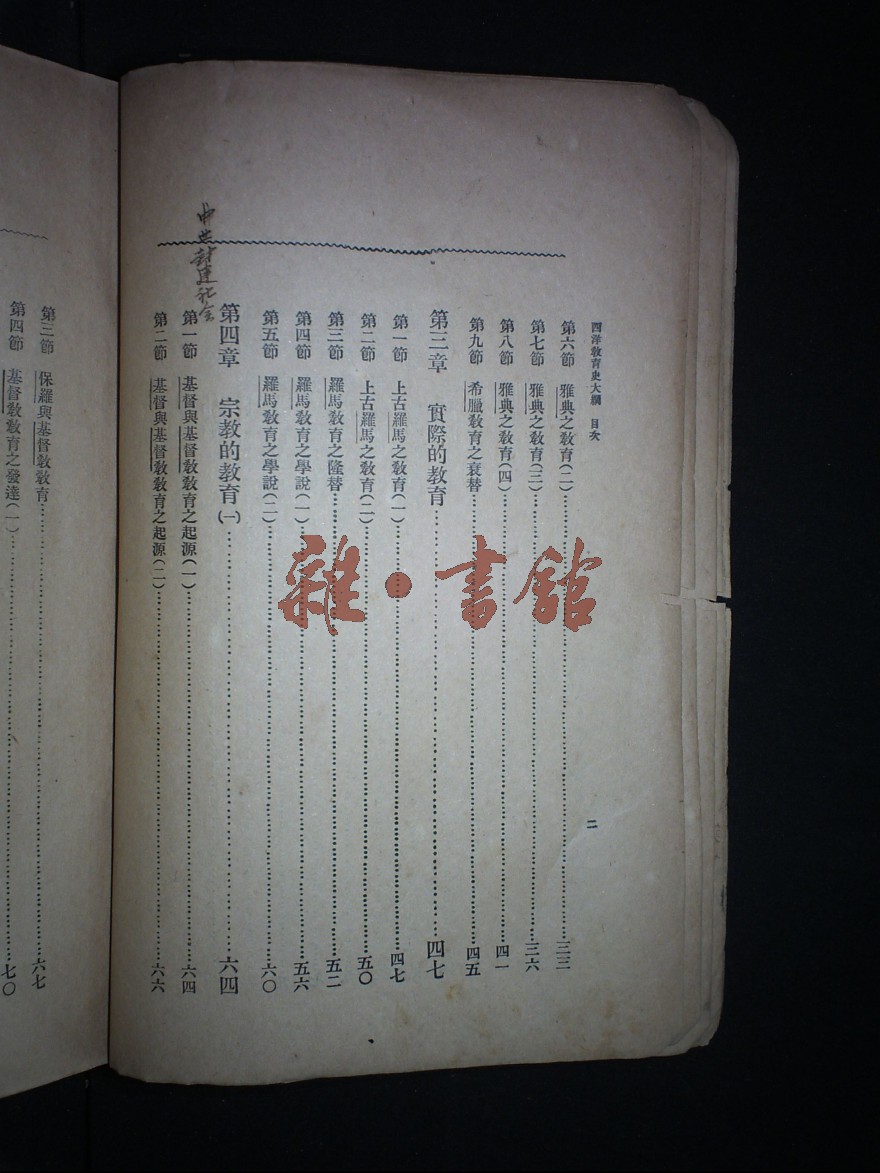 西洋敎育史大綱 目次
二
第六節 雅典之敎育(二)…………三三
第七節 雅典之敎育(三)…………三六
第八節 雅典之敎育(四)…………四一
第九節 希臘敎育之衰替…………四五
第三章 實際的敎育…………四七
第一節 上古羅馬之敎育(一)…………四七
第二節 上古羅馬之敎育(二)…………五〇
第三節 羅馬敎育之隆替…………五二
第四節 羅馬敎育之學說(一)…………五六
第五節 羅馬敎育之學說(二)…………六〇
第四章 宗敎的敎育(一)…………六四
第一節 基督與基督敎敎育之起源(一)…………六四
第二節 基督與基督敎敎育之起源(二)…………六六
中世封建社会
第三節 保羅與基督敎敎育…………六七
第四節 基督敎敎育之發達(一)…………七〇
雜·書館